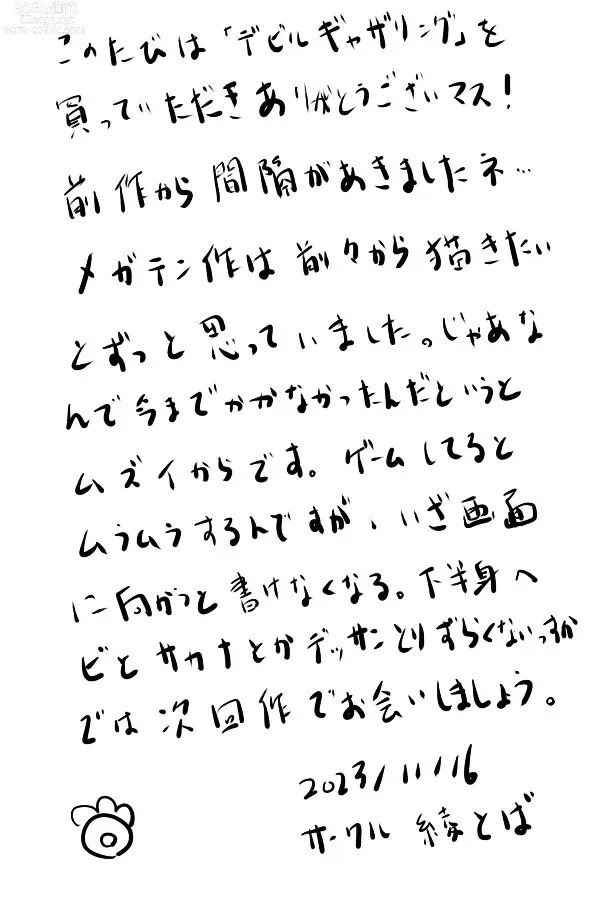 このたびは「デビルギャザリング」を
買っていただきありがとうございマス!
前作から間隔があきましたネ…
メガテン作は前々から描きたい
とずっと思っていました。じゃあな
んで今までかかなかったんだというと
ムズイからです。ゲームしてると
ムラムラするんですが、いざ画面
に向かうと書けなくなる。下半身へ
ビとサカナとかデッサンとりずらくないっすか
では次回作でお会いしましょう。
2023/11/16
サークル 綾とば